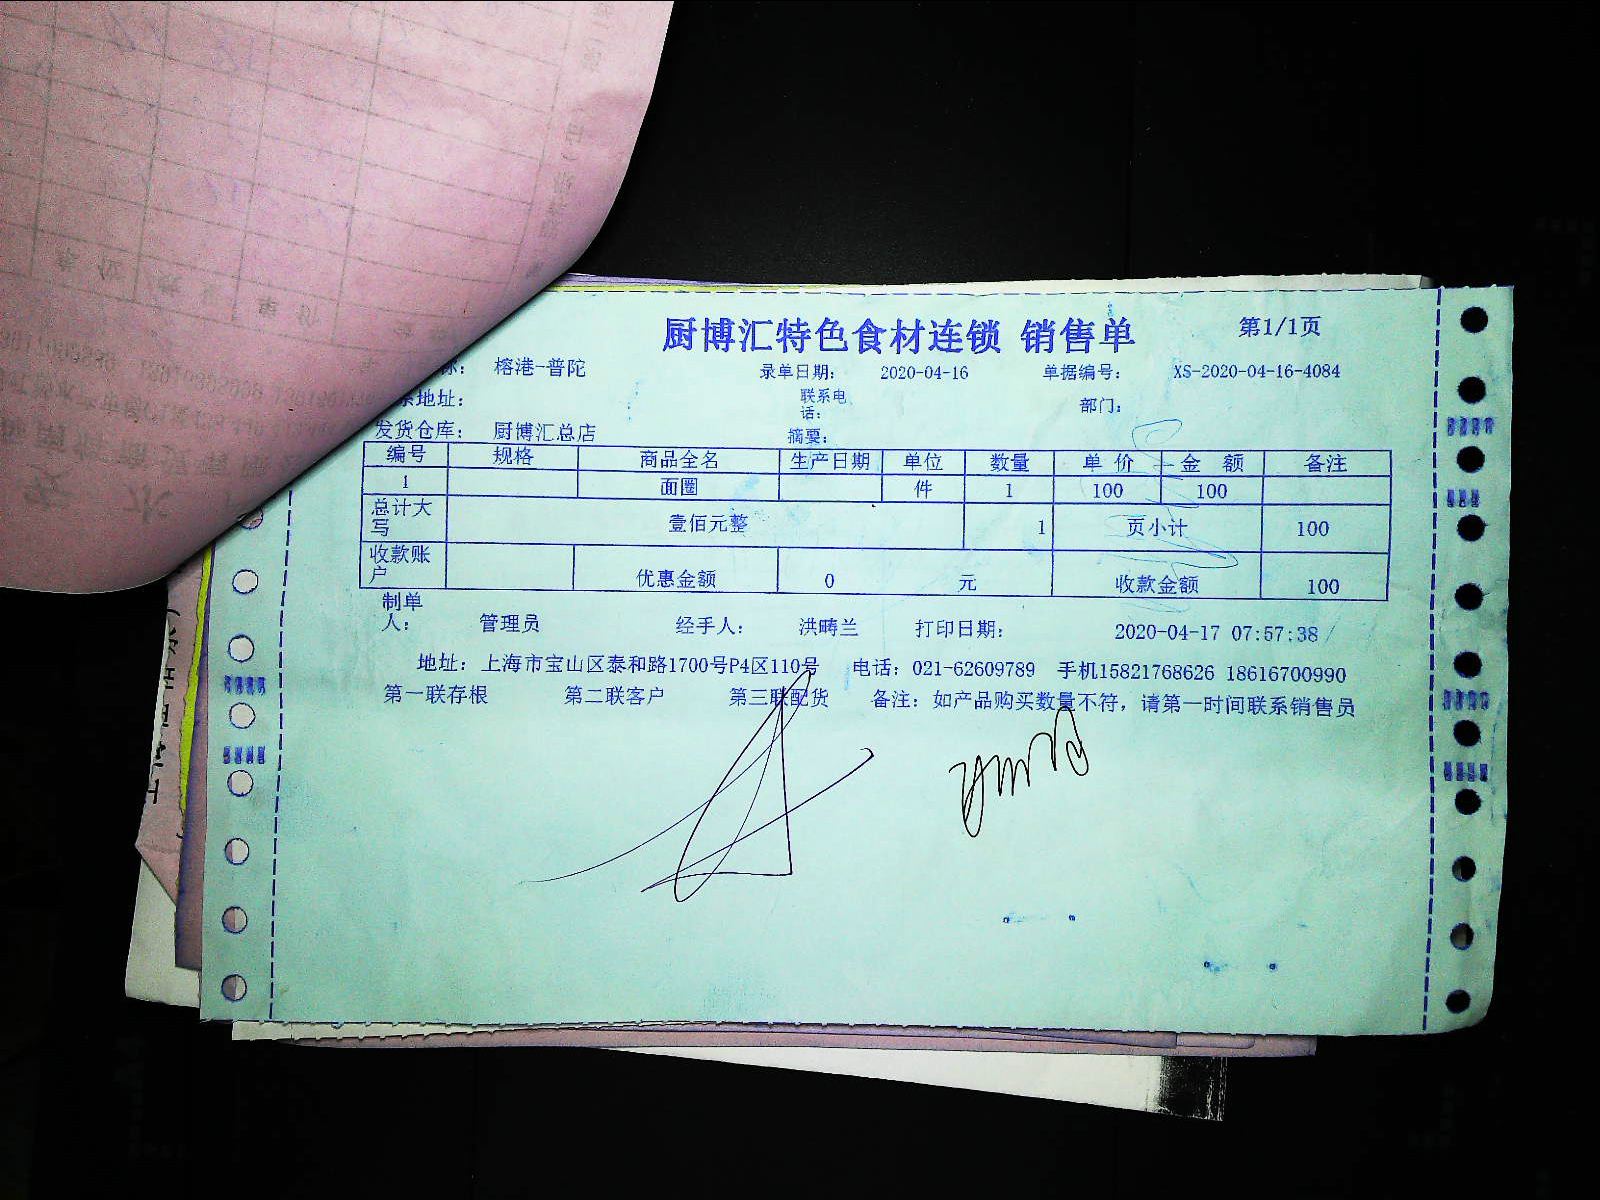 厨博汇特色食材连锁 销售单 第1/1页
称： 榕港-普陀 录单日期： 2020-04-16 单据编号： XS-2020-04-16-4084
系地址： 联系电话： 部门：
发货仓库： 厨博汇总店 摘要：
编号 规格 商品全名 生产日期 单位 数量 单价 金额 备注
1 面圈 件 1 100 100
总计大写 壹佰元整 1 页小计 100
收款账户 优惠金额 0 元 收款金额 100
制单人： 管理员 经手人： 洪畴兰 打印日期： 2020-04-17 07:57:38
地址：上海市宝山区泰和路1700号P4区110号 电话：021-62609789 手机15821768626 18616700990
第一联存根 第二联客户 第三联配货 备注：如产品购买数量不符，请第一时间联系销售员